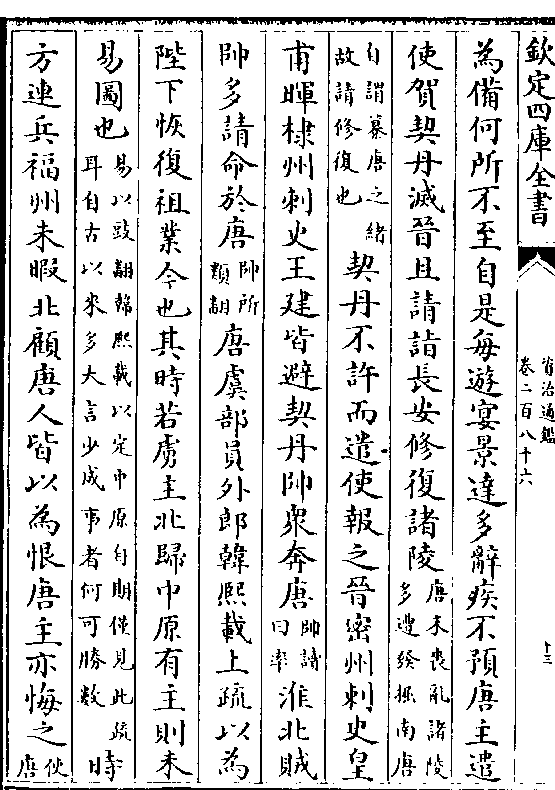 欽定四庫全書
資治通鑑
卷二百八十六
十三
為備何所不至自是每遊宴景達多辭疾不預唐主遣
使賀契丹滅晉且請詣長安修復諸陵
唐末喪亂諸陵
多遭發掘南唐
自謂纂唐之緒
故請修復也
契丹不許而遣使報之晉密州刺史皇
甫暉棣州刺史王建皆避契丹帥衆奔唐
帥讀
曰率
淮北賊
帥多請命於唐
帥所
類翻
唐虞部員外郎韓熙載上疏以為
陛下恢復祖業今也其時若虜主北歸中原有主則未
易圖也
易以豉翻韓熙載以定中原自期僅見此疏
耳自古以來多大言少成事者何可勝數
時
方連兵福州未暇北顧唐人皆以為恨唐主亦悔之
伙
唐